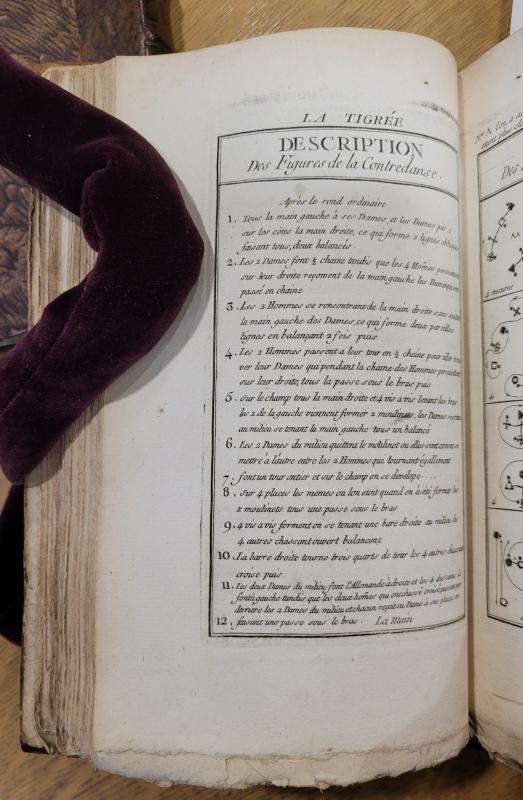 LA TIGRÉE
DESCRIPTION
Des Figures de la Contredanse.
Après le rond ordinaire
1. Tous la main gauche à ses Dames, et les Dames par 2
sur les côtes la main droite, ce qui forme 2 lignes obliques
faisant tous, deux balancés.
2. Les 2 Dames font ½ chaine tandis que les 4 Hom̄es
sur leur droite reçoivent de la main gauche les Dames
passé en chaine
3. Les 2 Hommes se rencontrant de la main droite sans quitter
la main gauche des Dames, ce qui forme deux pareilles
lignes en balançant 2 fois puis
4. Les 2 Hommes passent a leur tour en ½ chaine pour aller
ver leur Dames qui pendant la chaine des Hommes
sur leur droite, tous la passe sous le bras puis
5. sur le champ tous la main droite et 4 vis a vis levant les bras
les 2 de la gauche viennent former 2 moulinets, les Dames
au milieu se tenant la main gauche tous un balancé
6. Les 2 Dames du milieu quittent le moulinet ou elles sont
mettre à l'autre entre les 2 Hommes qui tournant égallement
7. font un tour entier et sur le champ on se dévelope . . . .
8. sur 4 places les memes ou l'on etoit quand on à été former les
2 moulinets tous une passe sous le bras
9. 4 vis a vis forment en se tenant une bare droite au milieu les
4 autres chassant ouvert balancent
10. La barre droite tourne trois quarts de tour les 4 autres chassant
croisé puis
11. Les deux Dames du milieu font l'Allemande à droite et les 4 des coins la
font à gauche tandis que les deux hom̄es qui ont chassé croisé passant par
derriere les 2 Dames du milieu et chacun reçoit sa Dame à sa place en
12. faisant une passe sous le bras. La Main
Nᵒ N. l'on a
etant plus
Des
4 mesures